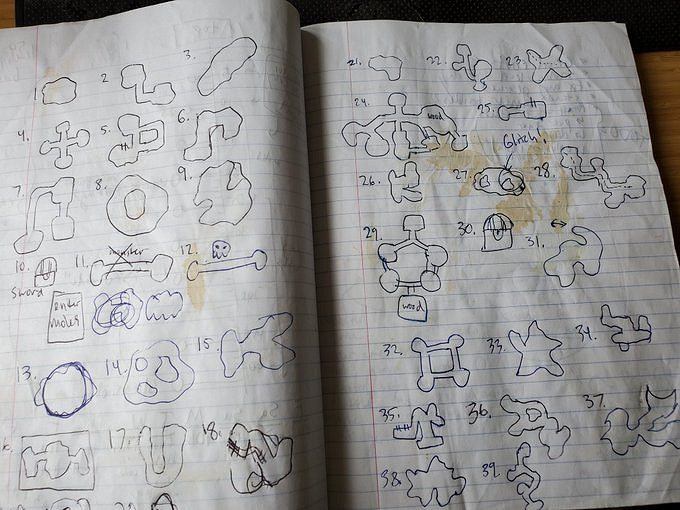 1.
2.
3.
4.
5.
6.
7.
8.
9.
10.
sword
11.
12.
13.
14.
15.
17.
18.
21.
22.
23.
24.
wood
25.
Glitch!
26.
27.
28.
29.
wood
30.
31.
32.
33.
34.
35.
36.
37.
38.
39.